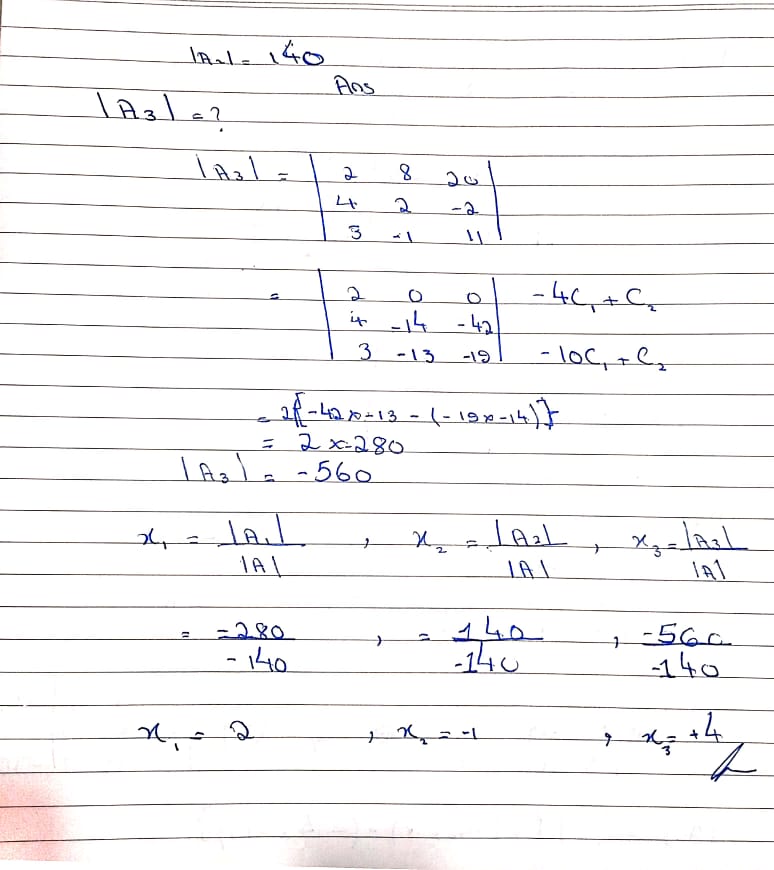 |A₂| = 140
Ans
|A₃| = ?
|A₃| = | 2 8 20 |
| 4 2 -2 |
| 3 -1 11 |
= | 2 0 0 | -4C₁ + C₂
| 4 -14 -42 |
| 3 -13 -19 | -10C₁ + C₂
= 2{-42x-13 - (-19x-14)}
= 2x-280
|A₃| = -560
x₁ = |A₁| / |A| , x₂ = |A₂| / |A| , x₃ = |A₃| / |A|
= -280 / -140 , = 140 / -140 , -560 / -140
x₁ = 2 , x₂ = -1 , x₃ = +4